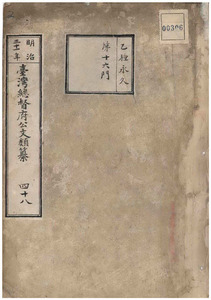 00306
乙種永久
第十六門
明治
三十一年
臺灣總督府公文類纂
四十八